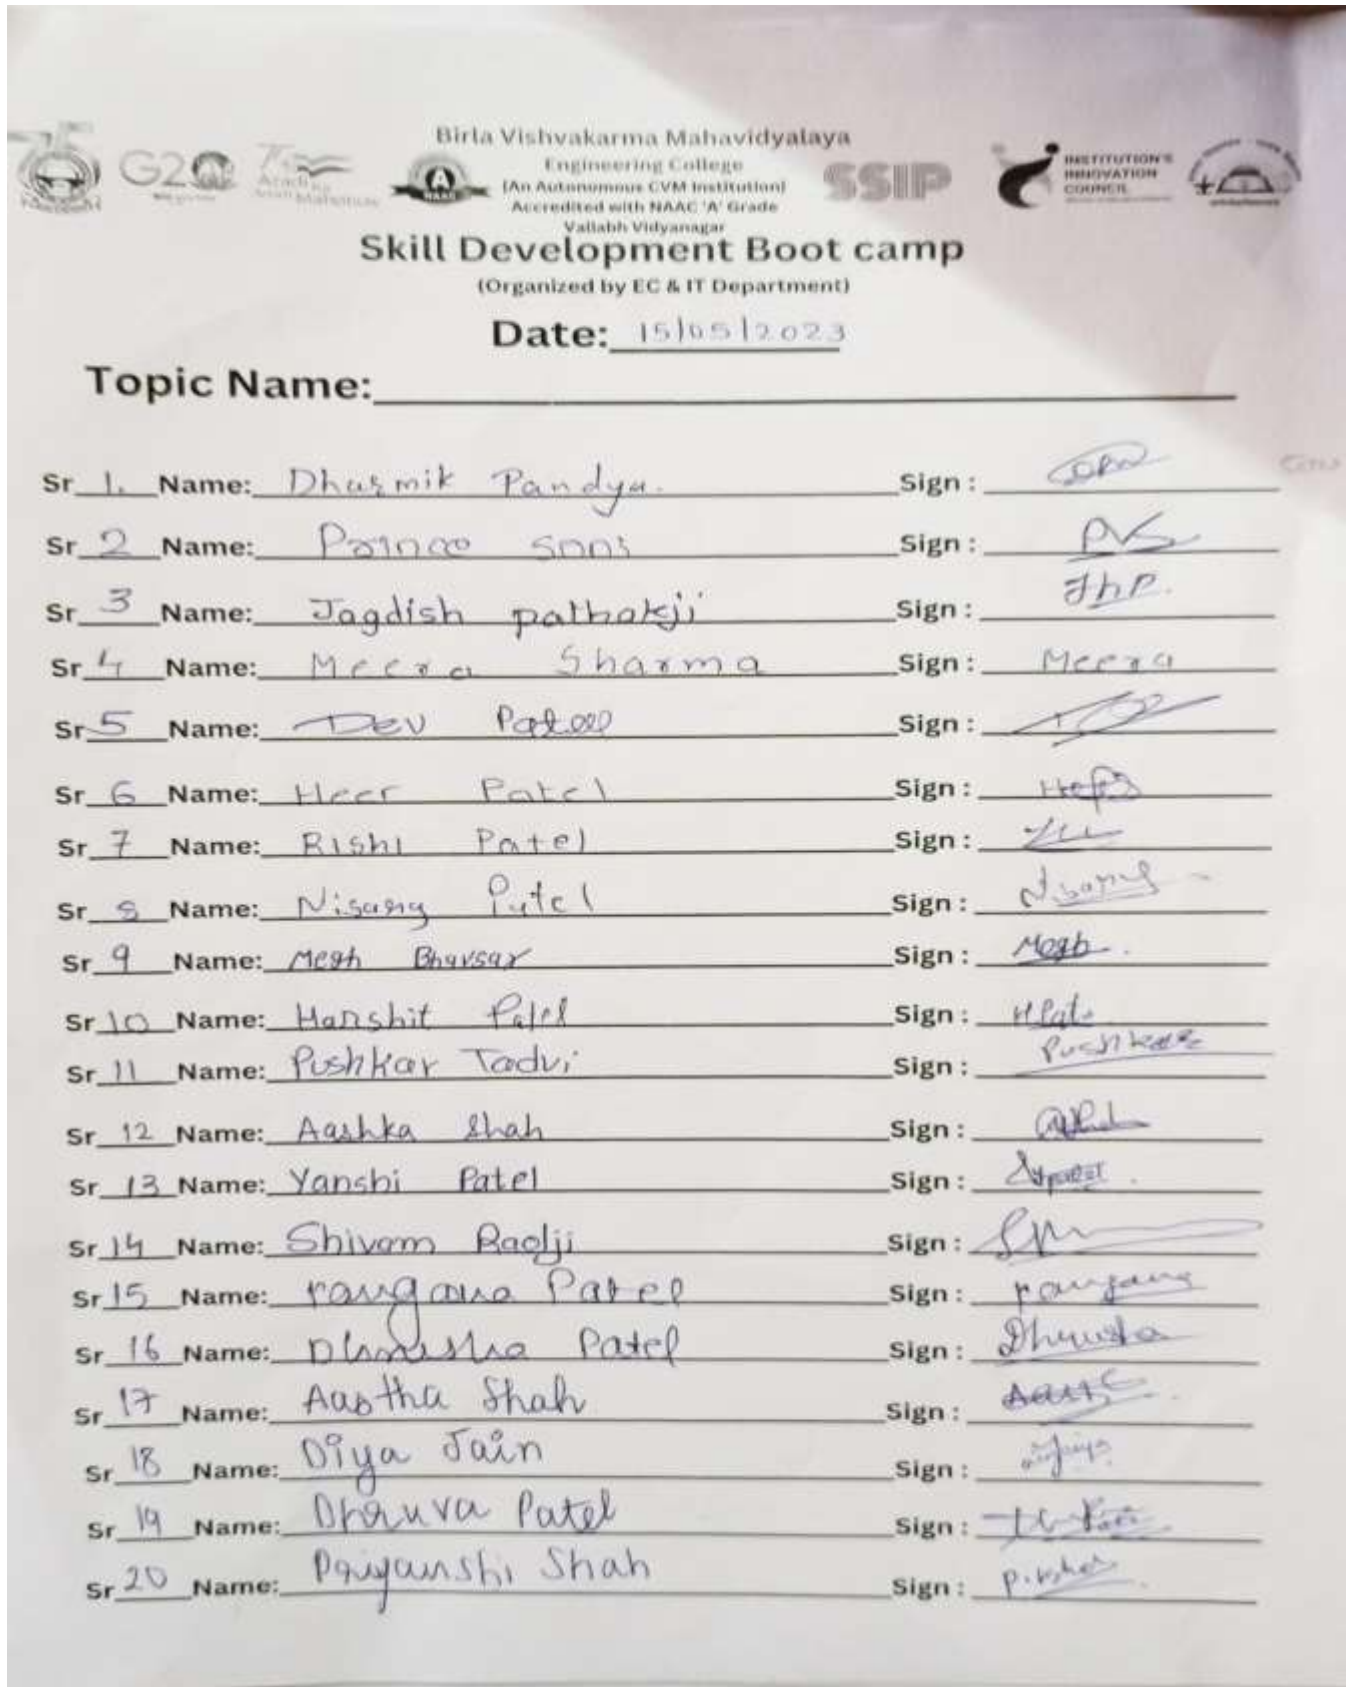 Birla Vishvakarma Mahavidyalaya
Engineering College
(An Autonomous CVM Institution)
Accredited with NAAC 'A' Grade
Vallabh Vidyanagar
G20
NAAC
A
SSIP
INSTITUTION'S
INNOVATION
COUNCIL
Skill Development Boot camp
(Organized by EC & IT Department)
Date: 15/05/2023
Topic Name:
Sr 1. Name: Dharmik Pandya. Sign :
Sr 2 Name: Prince Soni Sign :
Sr 3 Name: Jagdish pathakji Sign : JhP.
Sr 4 Name: Meera Sharma Sign : Meera
Sr 5 Name: Dev Patel Sign :
Sr 6 Name: Heer Patel Sign :
Sr 7 Name: Rishi Patel Sign :
Sr 8 Name: Nisarg Patel Sign : Nisarg
Sr 9 Name: Megh Bhavsar Sign : Megh.
Sr 10 Name: Harshit Patel Sign :
Sr 11 Name: Pushkar Tadvi Sign : Pushkar
Sr 12 Name: Aashka Shah Sign :
Sr 13 Name: Yanshi Patel Sign :
Sr 14 Name: Shivam Raolji Sign :
Sr 15 Name: Patel Sign :
Sr 16 Name: Patel Sign :
Sr 17 Name: Aastha Shah Sign :
Sr 18 Name: Diya Jain Sign :
Sr 19 Name: Dhruva Patel Sign :
Sr 20 Name: Priyanshi Shah Sign :